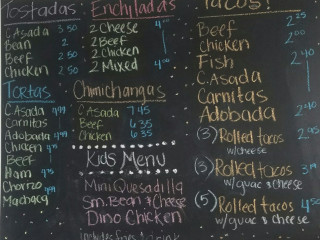 Tostadas
C Asada 3.50
Bean 2
Beef 2.50
Chicken 2.50
Enchiladas
2 Cheese 4.00
2 Beef
2 Chicken
2 Mixed 4.00
Tacos!
Beef 2.25
Chicken 2.00
Fish 2.40
C. Asada
Carnitas
Adobada 2.40
(3) Rolled tacos
w/cheese
(3) Rolled tacos
w/guac & cheese
(5) Rolled tacos 4.50
w/guac & cheese
Tortas
C Asada 4.99
Carnitas
Adobada 4.99
Chicken 4.75
Beef
Ham 4.75
Chorzo 4.99
Machaca
Chimichangas
C Asada 7.45
Beef 6.35
Chicken 6.35
Kids Menu
Mini Quesadilla
Sm. Bean & Cheese
Dino Chicken
includes fries & drink